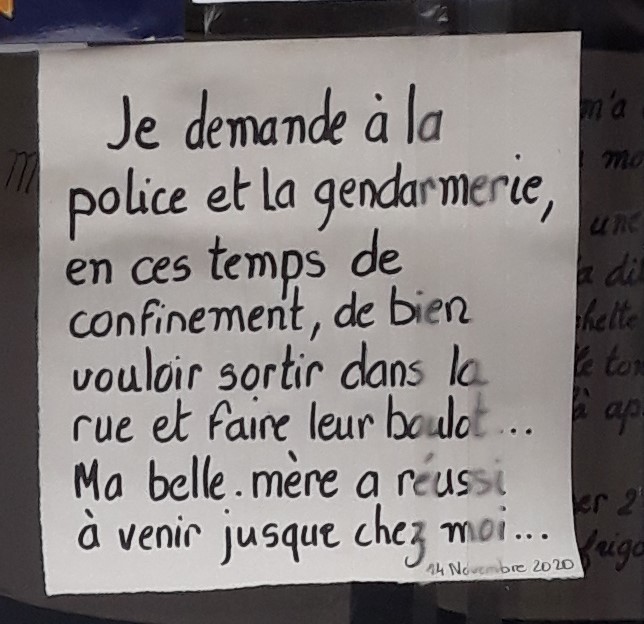 Je demande à la
police et la gendarmerie,
en ces temps de
confinement, de bien
vouloir sortir dans la
rue et faire leur boulot...
Ma belle.mère a réussi
à venir jusque chez moi...
14 Novembre 2020
m'a
une